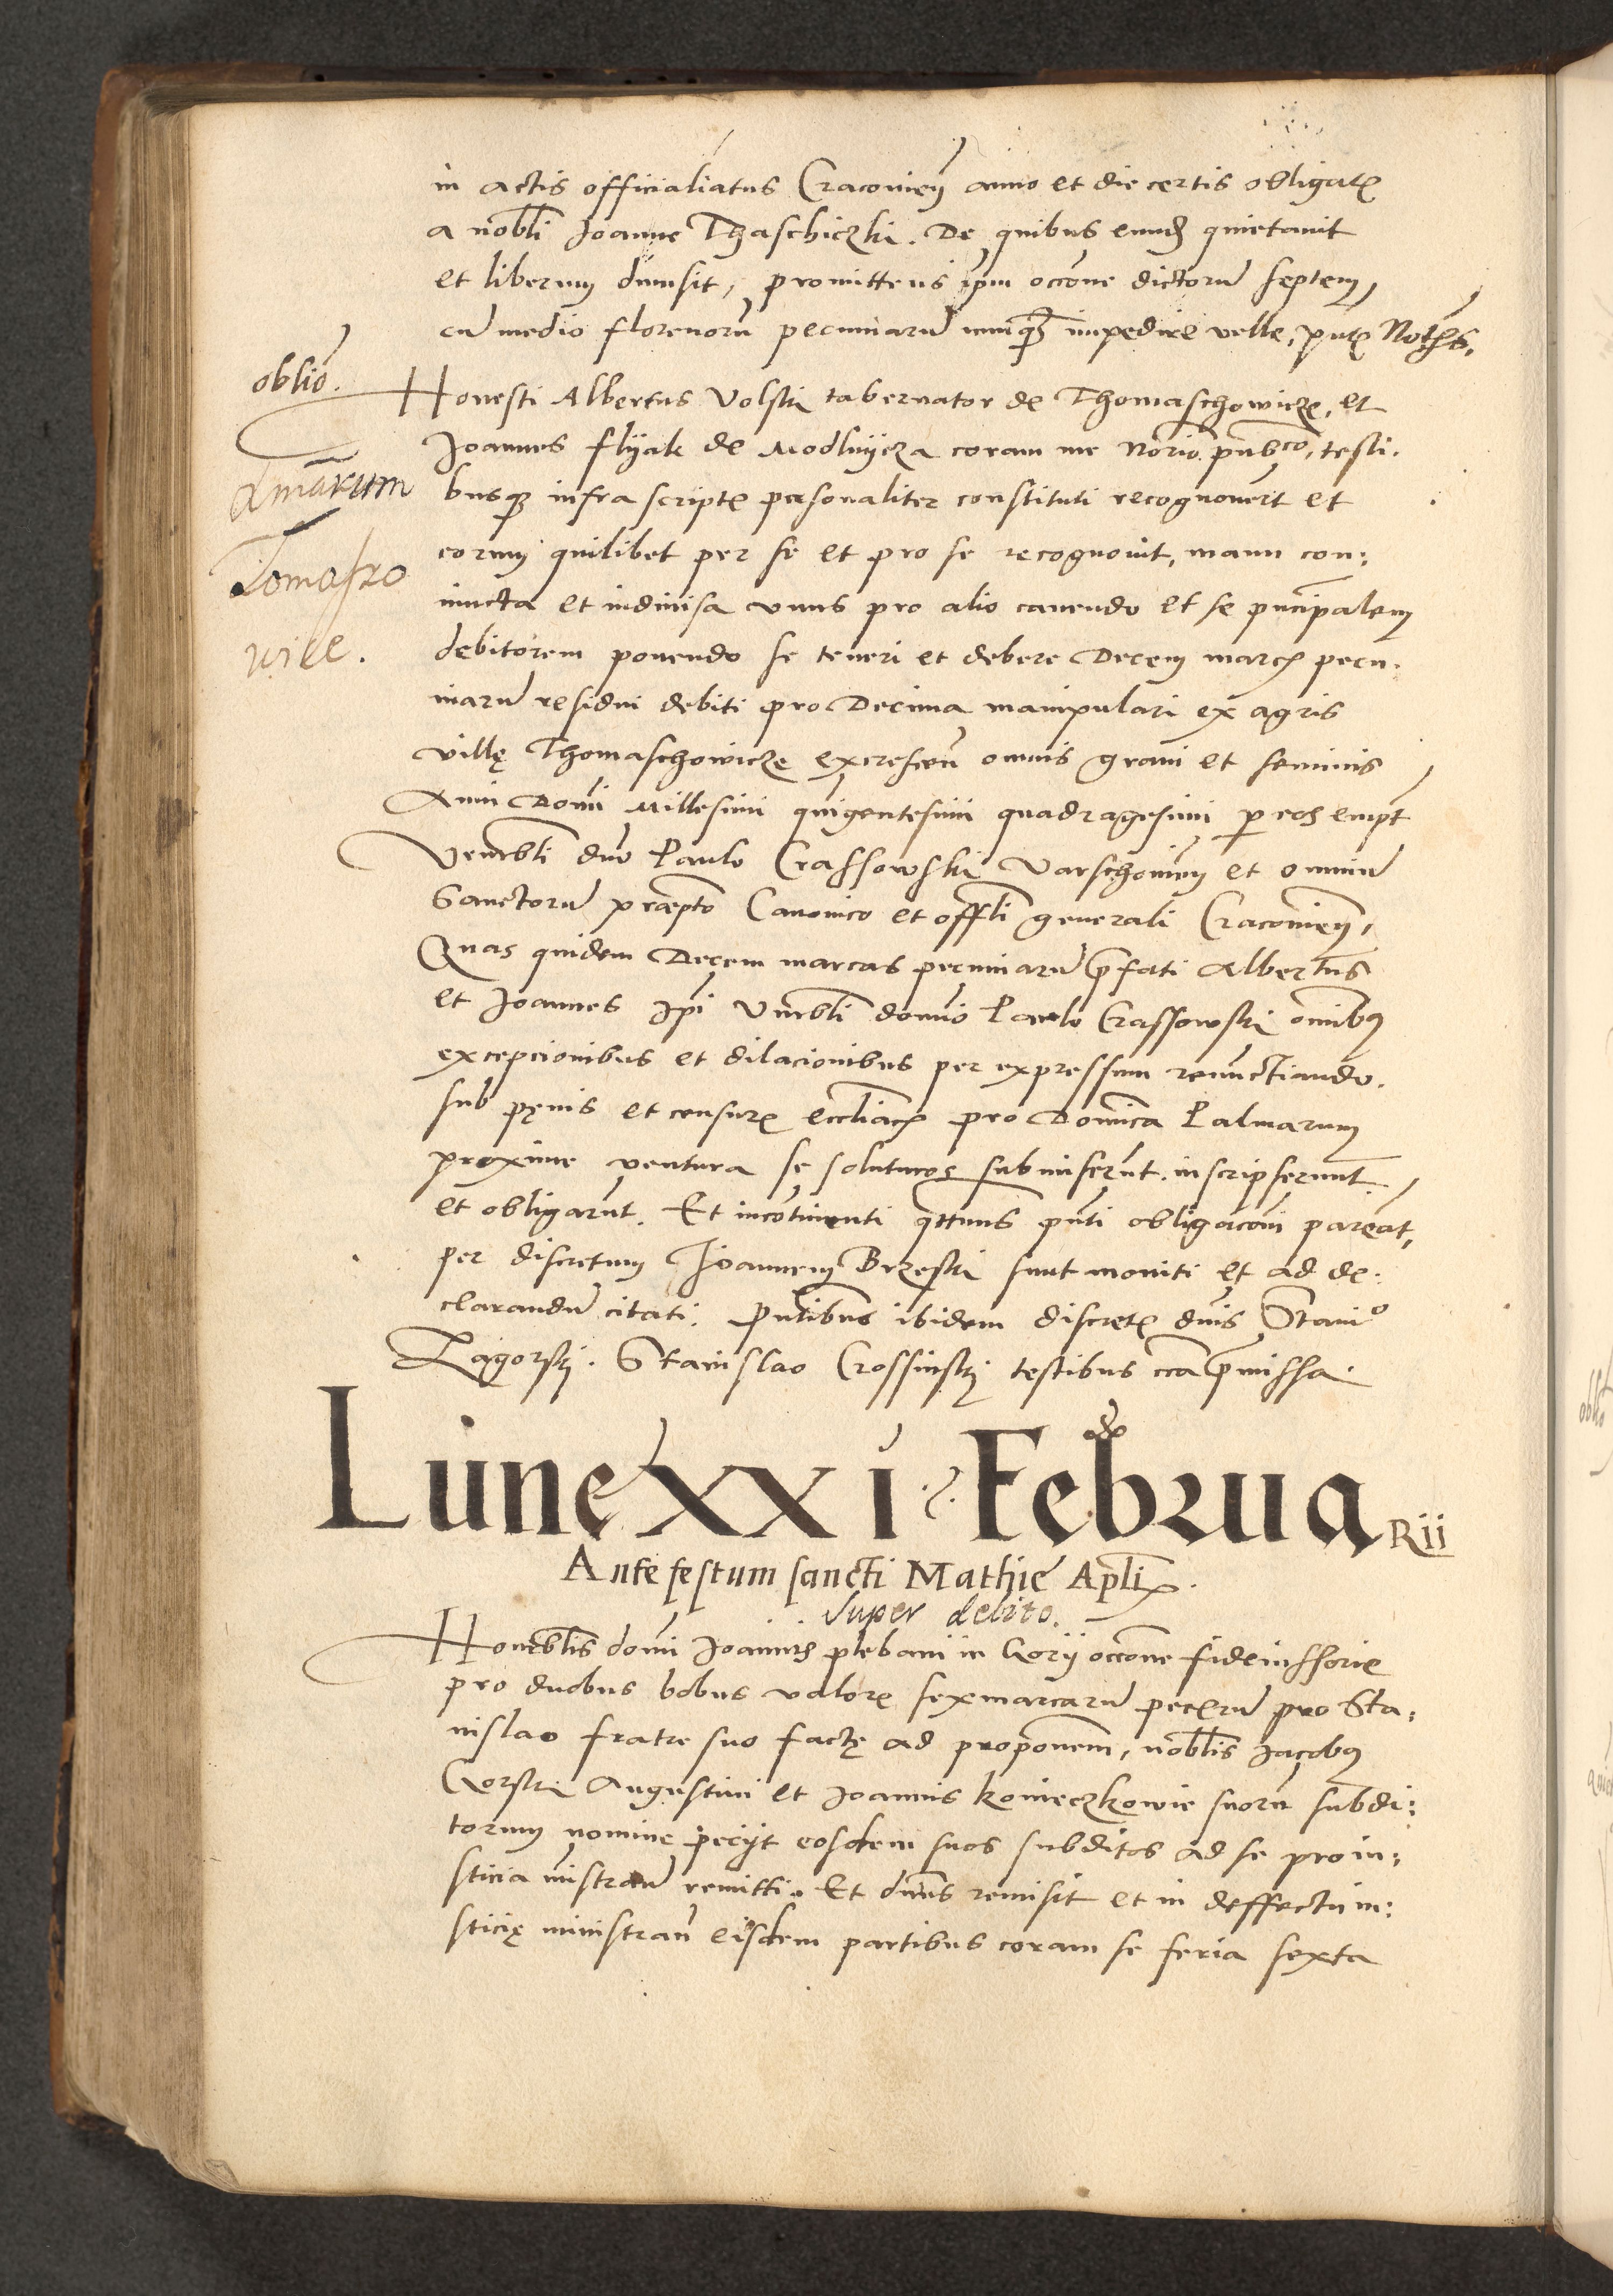 in actis officialiatus Cracovien̄ anno et die certis obligat
a nobli Joanne Thaschiczki. De quibus eund quietavit
et liberum dimisit, promittens ipm occone dictorū septem
cū medio florenorū pecuniarū nunq impedire velle, pnt Noth
oblio.
Honesti Albertus Volski tabernator de Thomaschowicze, et
Joannes Flyak de Modlnycza coram me Norio pub^co, testi.
dmarum
busq infra script personaliter constituti recognoverūt et
eorum quilibet per se et pro se recognovit, manu con:
Tomasko
iuncta et indivisa unus pro alio cavendo et se pncipalem
wice.
debitorem ponendo se teneri et debere Decem marc pecu.
niarū residui debiti pro Decima manipulari ex agris
villę Thomaschowicze excrescen̄ omnis grani et seminis
Anni Domi Millesimi quigentesimi quadragesimi p eos empt
Venerbli dno Paulo Crassowski Varschovien̄ et omniū
Sanctorū Canonico et offli generali Cracovien̄,
Quas quidem Decem marcas pecuniarū pfati Albertus
et Joannes Ipi Vnerbli domno Paulo Crassowski omibus
excepcionibus et dilacionibus per expressum renunctiando.
sub pęnis et censur eccliac pro Domica Palmarum
proxime ventura se soluturos submiserūt. inscripserunt
et obligarūt. Et incotinenti qtenus pnti obligaconi pareāt,
per discretum Joannem Brzeski sunt moniti et ad de:
clarandū citati. Pntibus ibidem discret dnis Stani^o
Zagorski. Stanislao Crossinski testibus cca pmissa.
Lune XXI Februa
Rii
Ante festum sancti Mathie Apli
super debito.
Honorblis domi Joannis plebani in Gory occone fideiussorie
pro duobus bobus valor sex marcarū pec pro Sta:
nislao fratre suo factę ad proponem, noblis Jacobus
Gorski Augustini et Joannis Konieczkowie suorū subdi:
torum nomine pecijt eosdem suos subditos ad se pro iu:
sticia mistran̄ remitti. Et dnus remisit et in deffectu iu:
sticię ministran̄ eisdem partibus coram se feria sexta